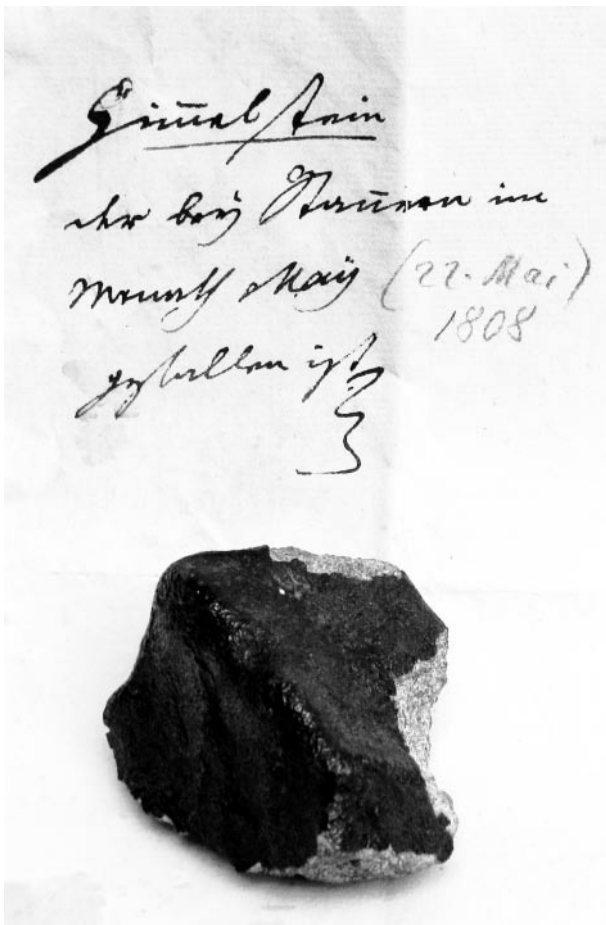 Himmelstein
der bey Stannern im
Monath Maÿ (22. Mai)
1808
gefallen ist